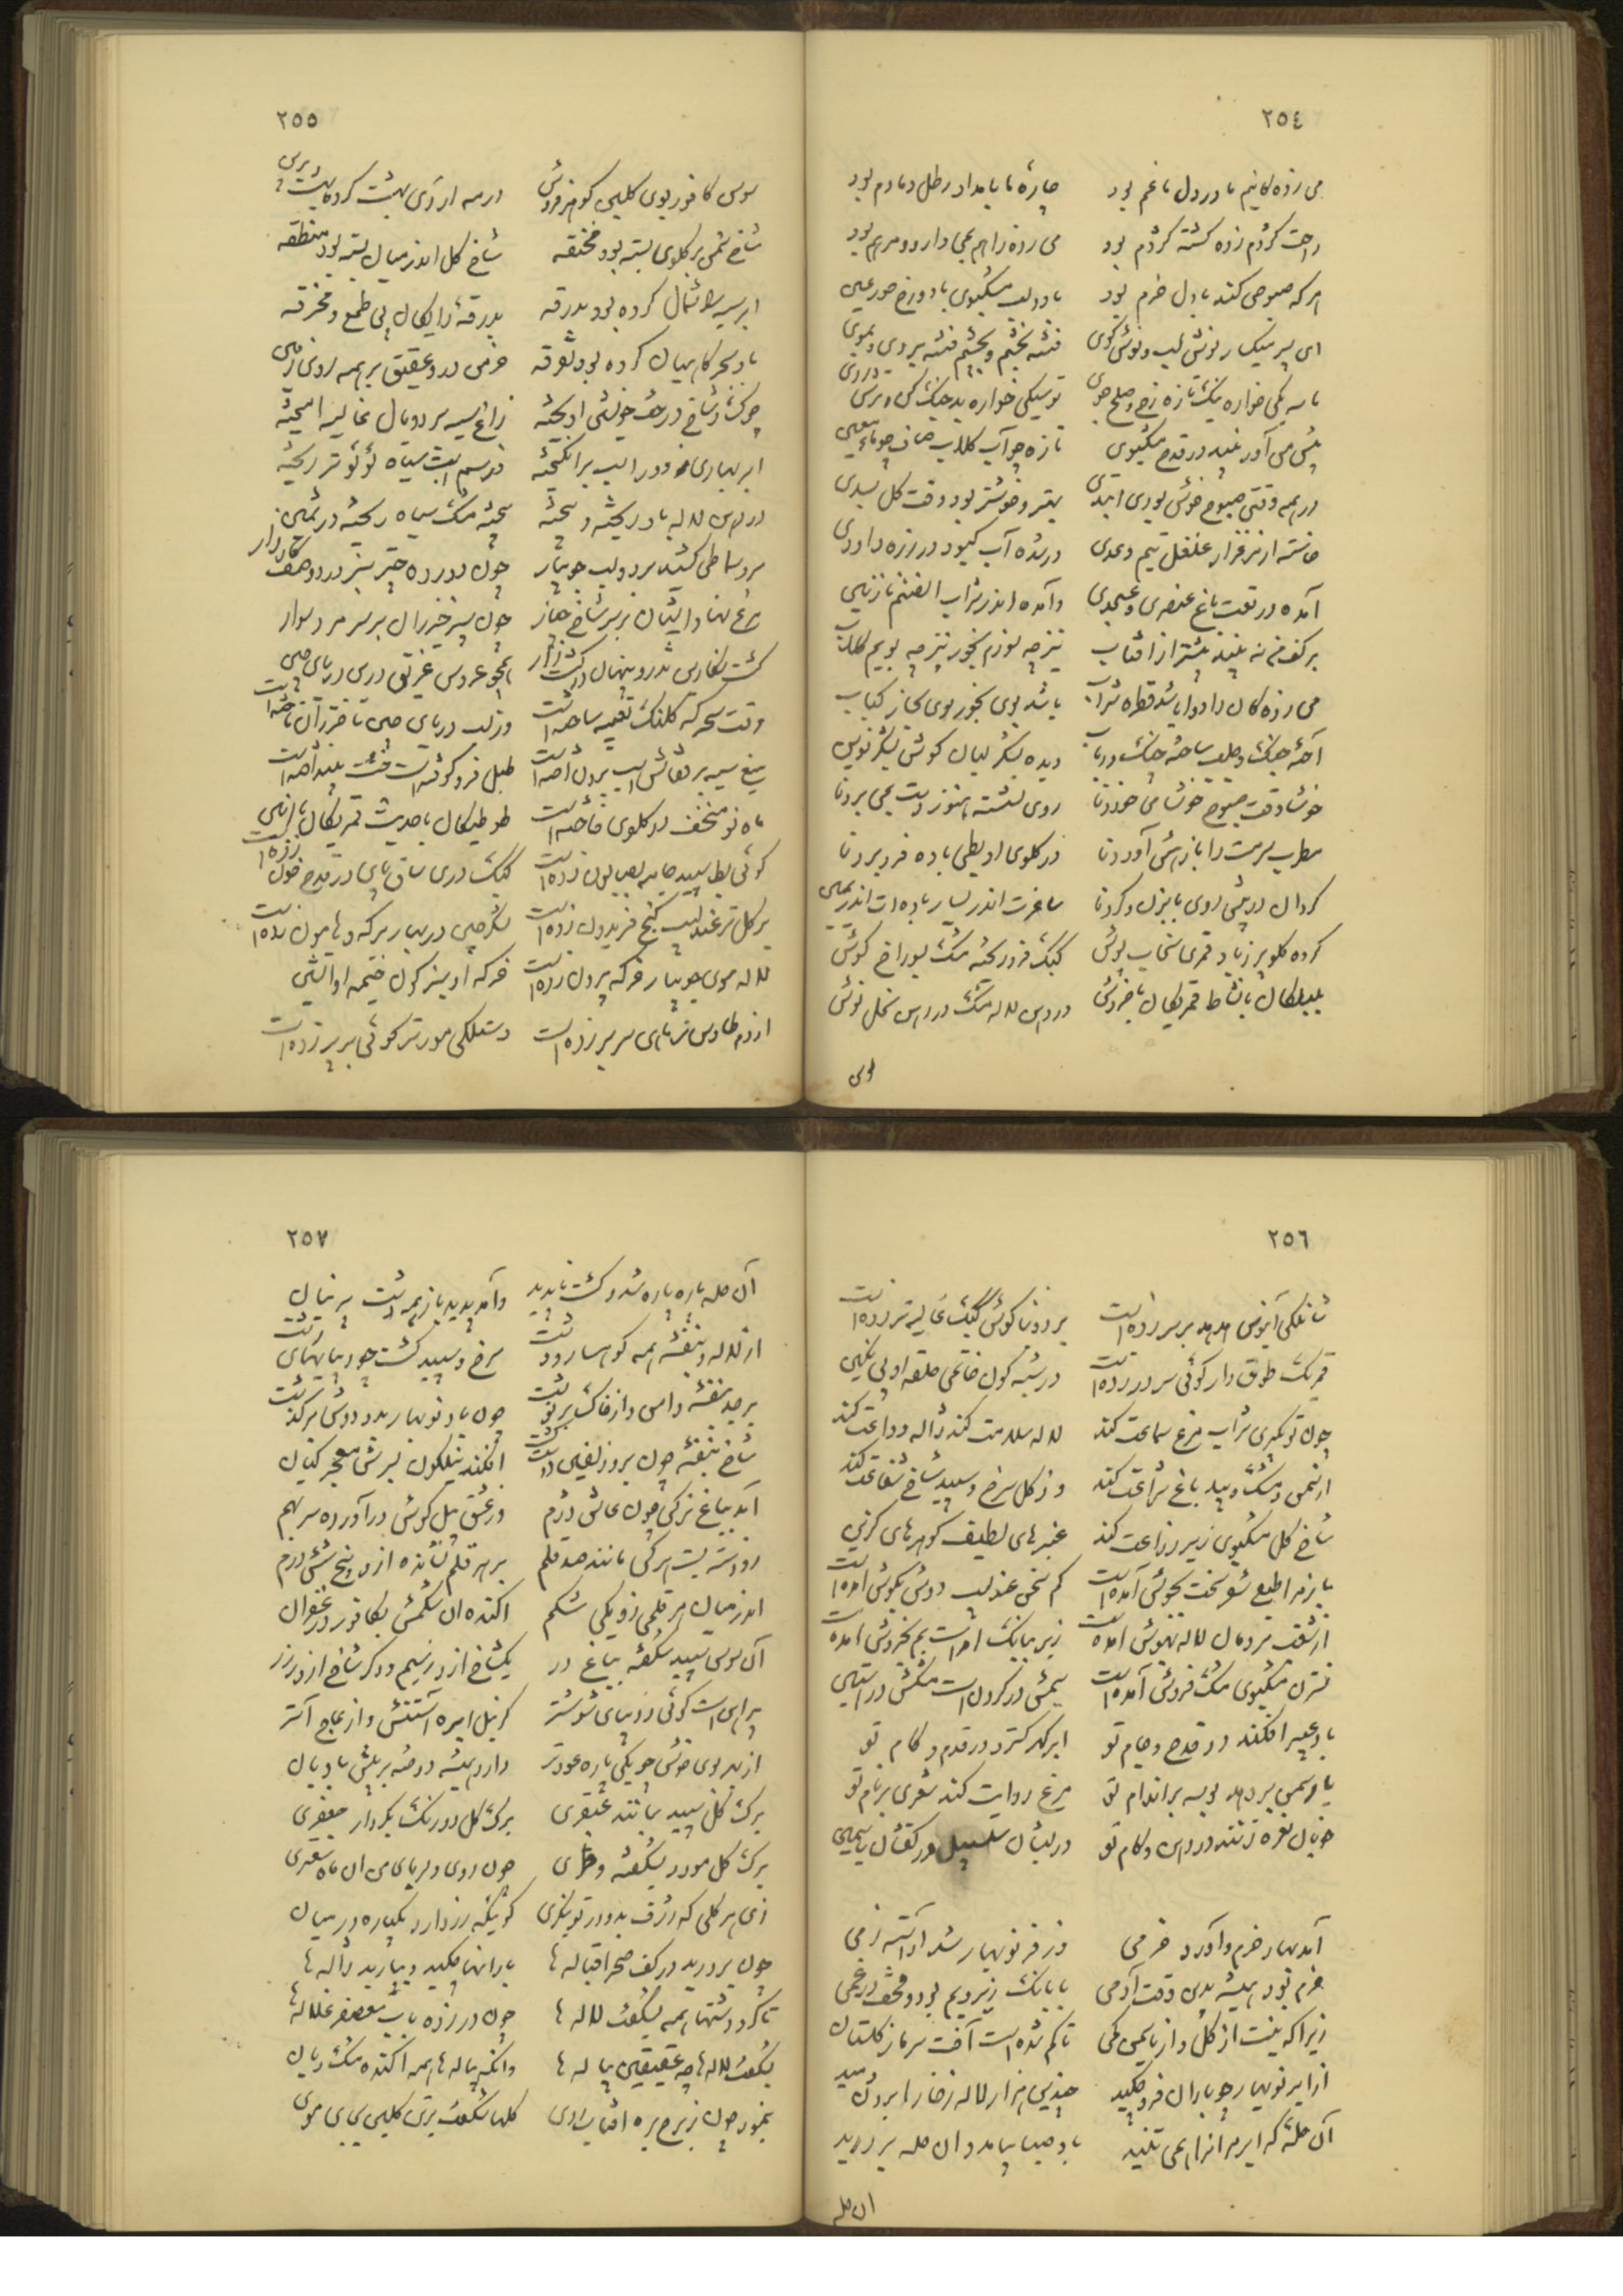 ٢٥٤
می زدگانیم ما در دل ما غم بود چارهٔ ما بامداد رطل دمادم بود
راحت کژدم زده کشته کژدم بود می زده را هم بمی دارو و مرهم بود
هر که صبوحی کند با دل خرم بود با دو لب مشکبوی با دو رخ حور عین
ای پسر میگسار نوش لب و نوش گوی فتنه بخشم و بچشم فتنه بروی و بموی
ما سیکی خواره نیک تازه رخ و صلح جوی تو سیکی خواره بد جنگ کن و ترش روی
پیش من آور نبید در قدح مشکبوی تازه چو آب گلاب صاف چو ماء معین
در همه وقتی صبوح خوش بودی ابتدی بهتر و خوشتر بود وقت گل بسدی
خاسته از مرغزار غلغل تیم و عدی در شده آب کبود در زره داودی
آمده در نعت باغ عنصری و عسجدی وآمده اندر شراب آن صنم نازنین
بر کف من نه نبید پیشتر از آفتاب نیز چه سوزم بخور نیز چه بویم گلاب
می زدگان را دوا باشد قطره شراب باشد بوی بخور بوی بخار کباب
آخته چنگ و چلب ساخته چنگ و رباب دیده بشکر لبان گوش بشکر نوین
خوشا وقت صبوح خوشا می خوردنا روی نشسته هنوز دست بمی بردنا
مطرب سرمست را بازهش آوردنا در گلوی او بطی باده فرو بردنا
گردان در پیش روی بابزن و گردنا ساغرت اندر یسار باده ات اندر یمین
کرده گلو پر زباد قمری سنجاب پوش کبک فرو ریخته مشک بسوراخ گوش
بلبلکان با نشاط قمریکان با خروش در دهن لاله مشک در دهن نحل نوش
سوسن
٢٥٥
سوسن کافور بوی گلبن گوهر فروش در مه اردی بهشت کرد بهشت برین
شاخ سمن بر گلوی بسته بود مخنقه شاخ گل اندر میان بسته بود منطقه
ابر سیه را شمال کرده بود بدرقه بدرقه رایگان بی طمع و مخرقه
باد سحرگاهیان کرده بود تفرقه خرمن در و عقیق بر همه روی زمین
چوک ز شاخ درخت خویشتن آویخته زاغ سیه بر دو بال غالیه آمیخته
ابر بهاری ز دور اسب برانگیخته وز سم اسب سیاه لؤلؤ تر ریخته
در دهن لاله باد ریخته و بیخته بیخته مشک سیاه ریخته در ثمین
سرو سماطی کشید بر دو لب جویبار چون دو رده چتر سبز در دو صف کارزار
مرغ نهاد آشیان بر سر شاخ چنار چون سپر خیزران بر سر مرد سوار
گشت نگارین تذرو پنهان در کشتزار همچو عروس غریق در بن دریای چین
وقت سحرگه کلنگ تعبیه ساخته است وز لب دریای چین تا خزران تاخته است
میغ سیه بر قفاش تیغ برون آخته است طبل فرو کوفته است خشت بینداخته است
ماه نو منخسف در گلوی فاخته است طوطیکان با حدیث قمریکان با انین
گوئی بط سپید جامه بصابون زده است کبک دری ساق پای در قدح خون زده است
بر گل تر عندلیب گنج فریدون زده است لشکر چین در بهار بر که و هامون زده است
لاله سوی جویبار خرگه بیرون زده است خرگه او سبز گون خیمه او آتشین
از دم طاوس نر ماهی سر بر زده است دستگکی مورد تر گوئی بر پر زده است
٢٥٦
شانگکی آبنوس هدهد بر سر زده است بر دو بناگوش کبک غالیه تر زده است
قمریک طوق دار گوئی سر در زده است در شبه گون خاتمی حلقه او بی نگین
چون تو بگیری شراب مرغ سماعت کند لاله سلامت کند ژاله وداعت کند
از سمن و مشک و بید باغ شراعت کند وز گل سرخ و سپید شاخ شفاعت کند
شاخ گل مشکبوی زیر ذراعت کند عنبرهای لطیف گوهرهای گزین
باز مرا طبع شعر سخت بجوش آمده است کم سخن عندلیب دوش بگوش آمده است
از شغب مردمان لاله بهوش آمده است زیر ببانگ آمده است بم بخروش آمده است
نسترن مشکبوی مشک فروش آمده است سیمش در گردن است مشکش در آستین
باد عبیر افکند در قدح و جام تو ابر گهر گسترد در قدم و گام تو
یار سمن بر دهد بوسه بر اندام تو مرغ روایت کند شعری بر نام تو
خوبان نعره زنند در دهن و کام تو در لبشان سلسبیل در کفشان یاسمین
آمد بهار خرم و آورد خرمی وز فر نوبهار شد آراسته زمی
خرم بود همیشه بدین وقت آدمی با بانگ زیر و بم بود و قحف در غمی
زیرا که نیست از گل و از یاسمن کمی تا کم شده است آفت سرما ز گلستان
از ابر نوبهار چو باران فرو چکید چندین هزار لاله ز خارا برون دمید
آن حله که ابر مر او را همی تنید باد صبا بیامد و آن حله بر درید
آن حله
٢٥٧
آن حله پاره پاره شد و گشت ناپدید وآمد پدید باز همه دشت پرنیان
از لاله و بنفشه همه کوهسار و دشت سرخ و سپید گشت چو دیباهای رشت
برچد بنفشه دامن و از خاک بر نوشت چون باد نوبهار بدو دوش برگذشت
شاخ بنفشه چون سر زلفین دوست گشت افکند نیلگون بسرش معجر کتان
آمد بباغ نرگس چون عاشق دژم وز عشق پیلگوش در آورده سر بهم
زو دسته بست هر کس مانند صد قلم بر هر قلم نشانده از او پنج شش درم
اندر میان هر قلمی زو یکی شکم آکنده آن شکمش بکافور و زعفران
آن سوسن سپید شکفته بباغ در یک شاخ از او زسیم و دگر شاخ از او ز زر
پیراهن است گوئی ز دیبای شوشتر کز نیل ابره استش و از عاج آستر
از بهر بوی خوش چو یکی پاره عود تر دارد همیشه دوخته بر پیش بادبان
برگ گل سپید بمانند عبقری برگ گل دو رنگ بکردار جعفری
برگ گل مورد بشکفته طری چون روی دلربای من آن ماه سعتری
زی هر گلی که ژرف بدو در تو بنگری گوئی که زر دارد یکباره در میان
چون بر درید در کف صحرا قباله ها باران ها چکید و ببارید ژاله ها
تا گرد دشتها همه بشکفت لاله ها چون در زده بآب معصفر غلاله ها
بشکفت لاله ها چو عقیقین پیاله ها وآنگه پیاله ها همه آکنده مشک و بان
بنمود چون ز برج بره آفتاب روی گلها شکفت بر تن گلبن بجای موی